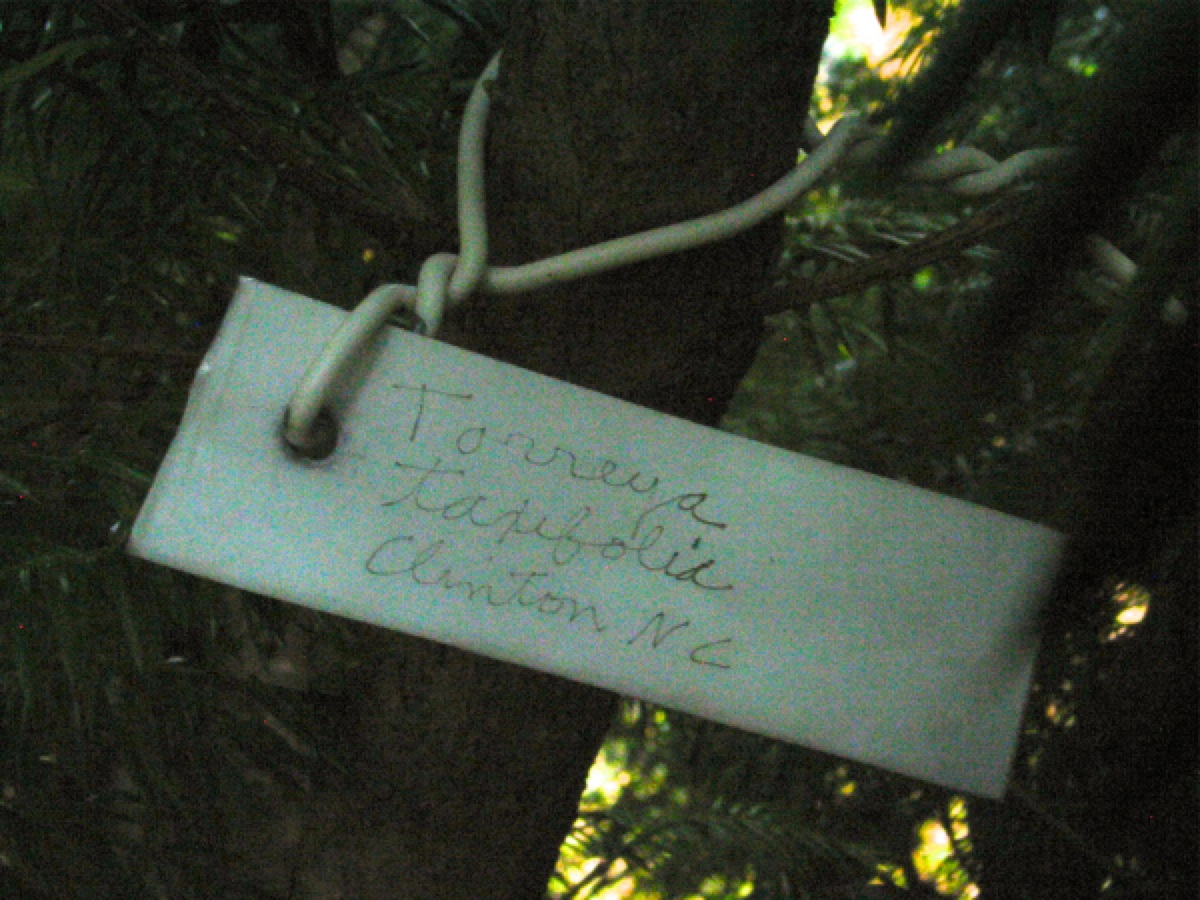 Torreya
taxifolia
Clinton NC